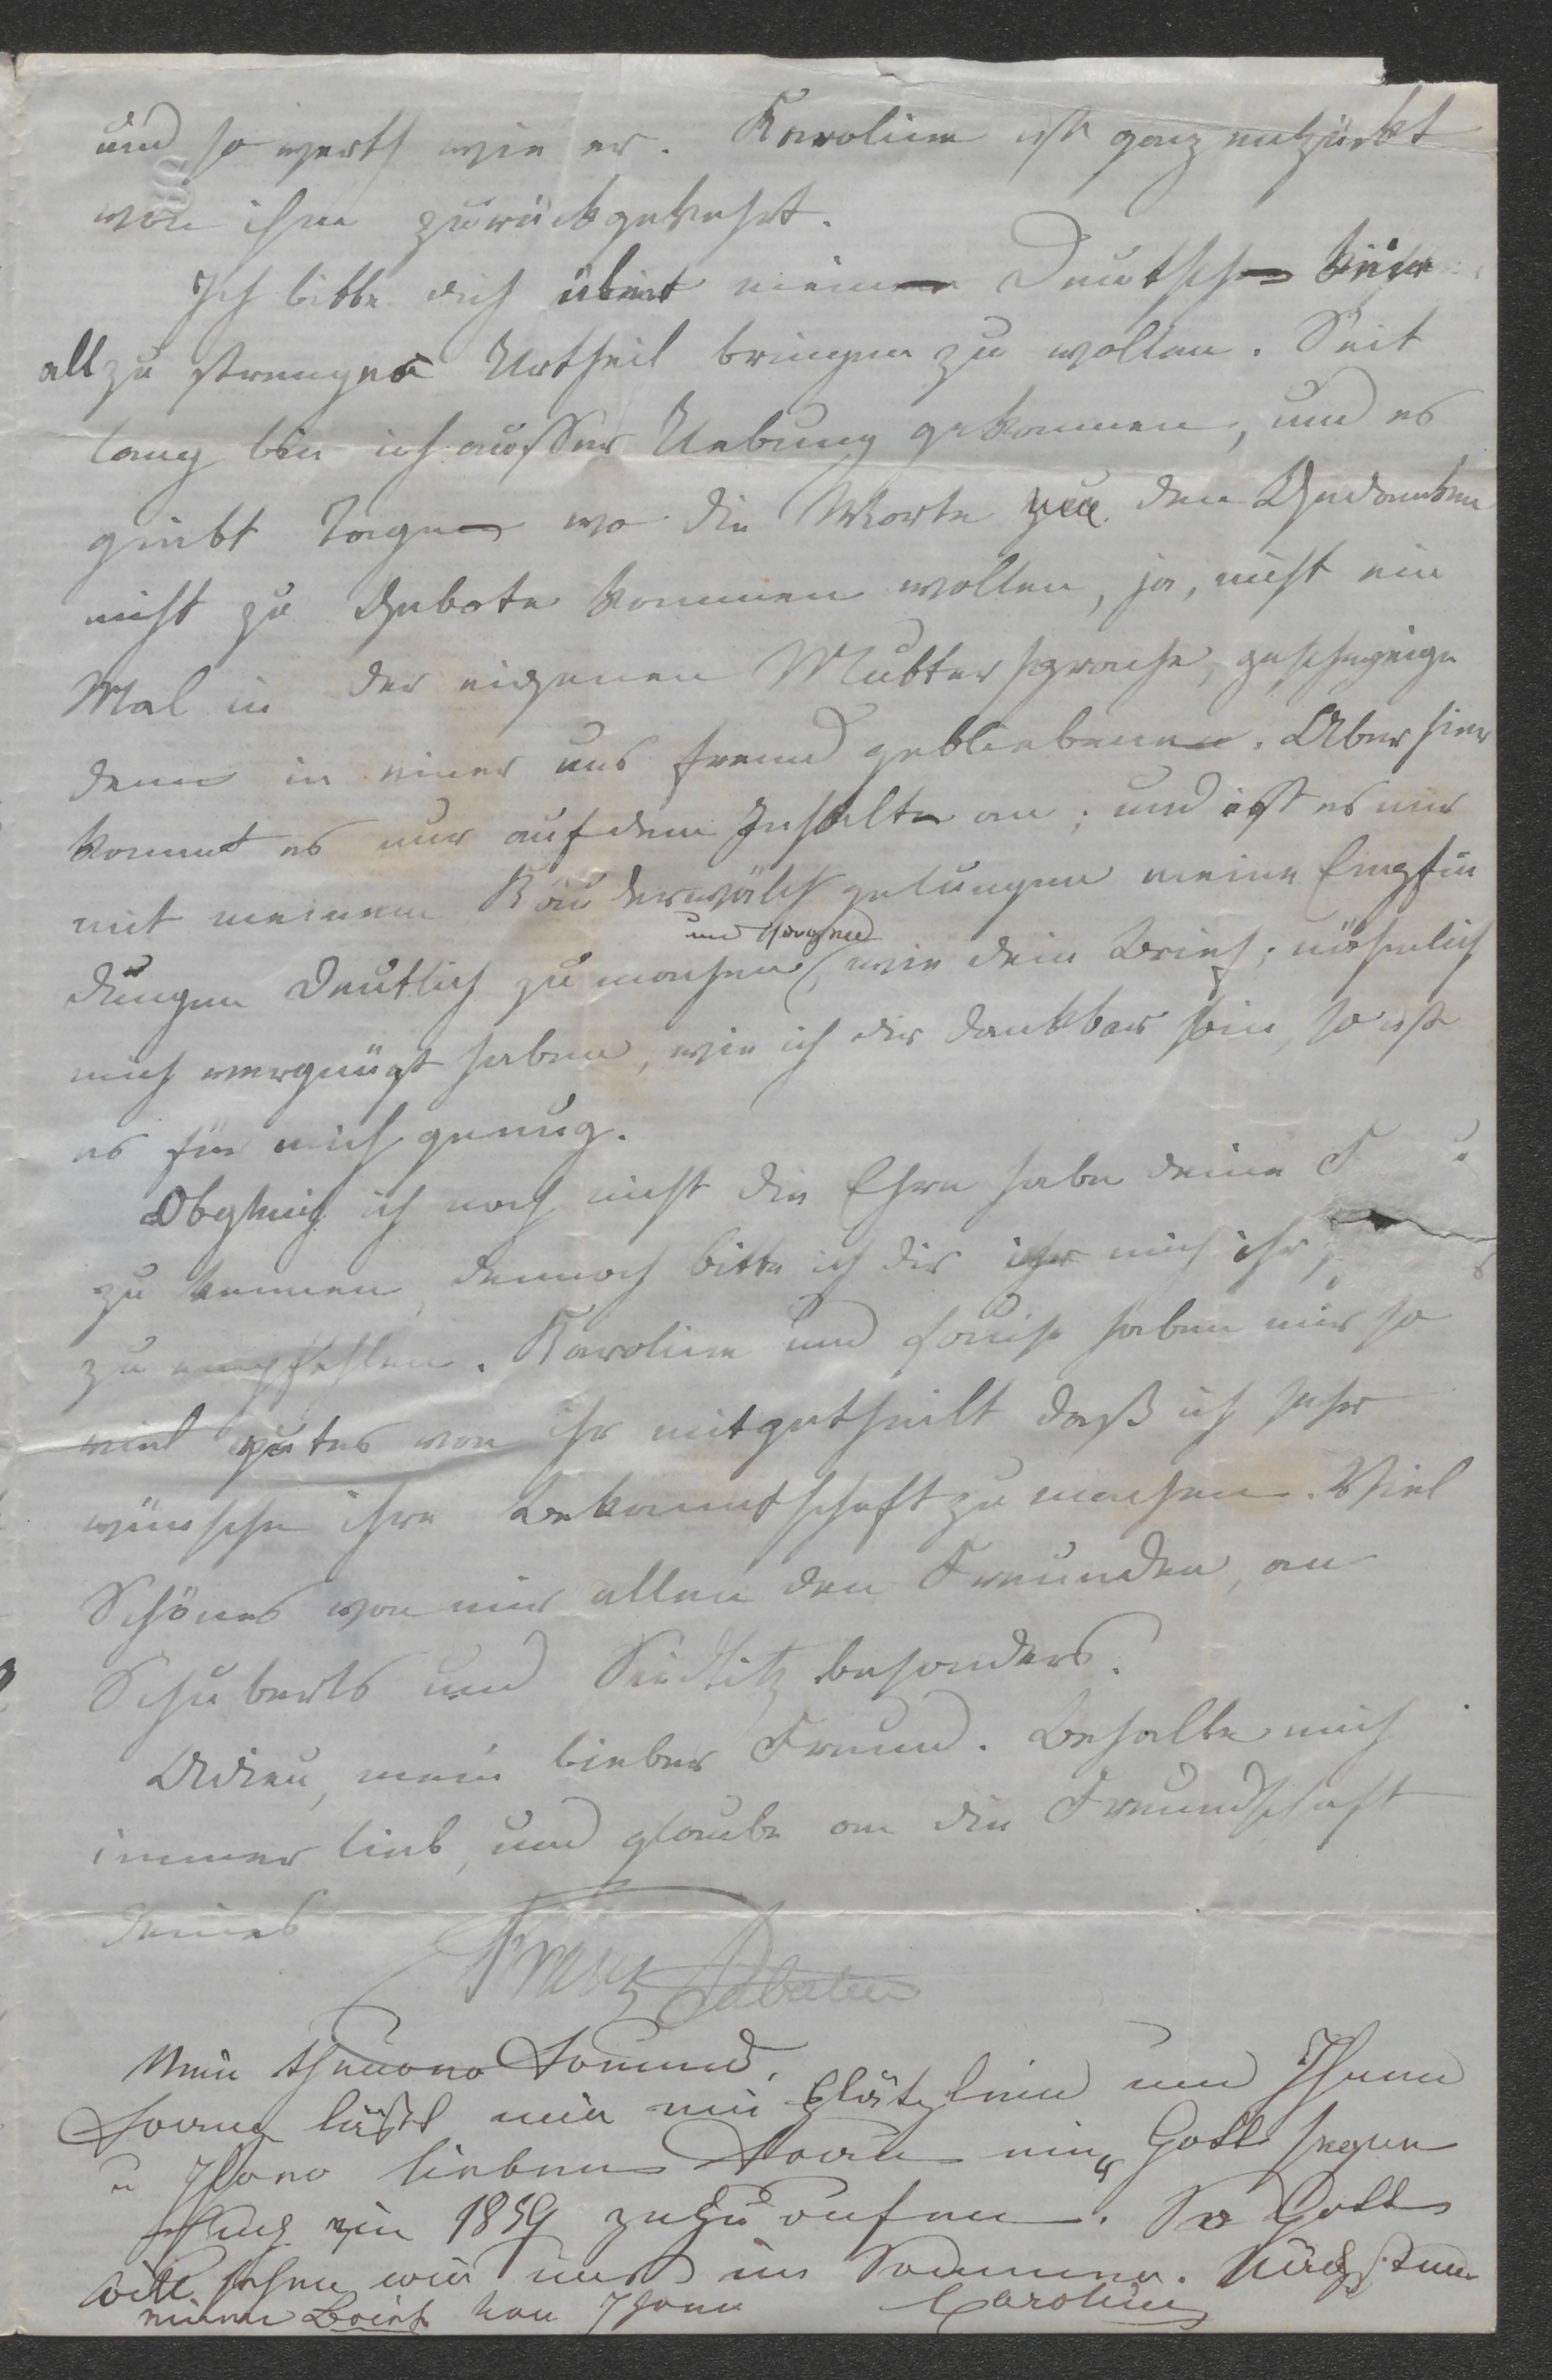 und so werth wie er. Karoline ist ganz entzückt
von ihm zurückgekehrt.
Ich bitte dich über meine Deutsch kein
allzu strenges Urtheil bringen zu wollen. Seit
lang bin ich ausser Uebung gekommen, und es
giebt Tage wo die Worte den Gedanken
nicht zu Gebote kommen wollen, ja, nicht ein
Mal in der eigenen Muttersprache, geschweige
denn in einer uns fremd gebliebenen. Aber hier
kommt es nur auf dem Inhalte an; und ist es mir
mit meinem Kauderwälsch gelungen meine Empfin
dungen deutlich zu machen, wie dein Brief, nähmlich
und
mich vergnügt haben, wie ich dir dankbar bin, so ist
es für mich genug.
Obgleich ich noch nicht die Ehre habe deine F
zu kennen, dennoch bitte ich dir mich ihr
zu empfehlen. Karoline und Louise haben mir so
viel gutes von ihr mitgetheilt daß ich sehr
wünsche ihre Bekanntschaft zu machen. Viel
Schönes von mir allen den Freunden, an
Schuberts und Seidlitz besonders.
Adieu, mein lieber Freund. Behalte mich
immer lieb, und glaube an die Freundschaft
deines
Franz Sabatier
Mein theurer Freund,
Franz läßt mir ein Plätzlein um Ihnen
u Ihrer lieben Frau ein "Gott segne
Euch" in 1859 zuzurufen. So Gott
will sehen wir uns im Sommer.
einen Brief von Ihnen Caroline